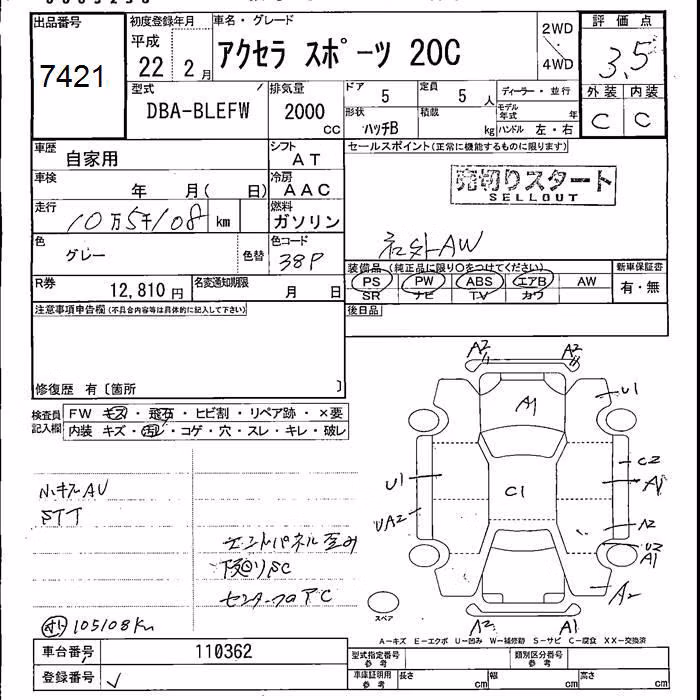 出品番号
7421
初度登録年月
平成
22 2月
車名・グレード
アクセラ スポーツ 20C
2WD
4WD
評価点
3.5
外装 内装
C C
型式
DBA-BLEFW
排気量
2000
CC
ドア 5
定員 5 人
形状 ハッチB
積載 kg
ディーラー・並行
モデル年式 年
ハンドル 左・右
車歴 自家用
シフト AT
車検 年 月( 日)
冷房 AAC
走行 10万5千108 km
燃料 ガソリン
色 グレー
色替
色コード 38P
R券 12,810 円
名変通知期限 月 日
セールスポイント(正常に機能するものに限ります)
売切りスタート
SELLOUT
社外AW
装備品(純正品に限り○をつけてください)
PS PW ABS エアB AW
SR ナビ TV カワ
新車保証書
有・無
後日品
注意事項申告欄(不具合内容等は具体的に記入して下さい)
修復歴 有〔箇所 〕
検査員記入欄
FW キズ・飛石・ヒビ割・リペア跡・×要
内装 キズ・汚レ・コゲ・穴・スレ・キレ・破レ
小キズAU
STT
エンドパネル歪み
下廻りSC
センターフロアC
105108Km
A2 A2
A1
U1
U1
C2
A1
C1
UA2
A2
U2
A1
A2
A2 A1
スペア
A-キズ E-エクボ U-凹み W-補修跡 S-サビ C-腐食 XX-交換済
車台番号 110362
登録番号
型式指定番号
参考
類別区分番号
参考
車庫証明用
参考
長さ cm
幅 cm
高さ cm